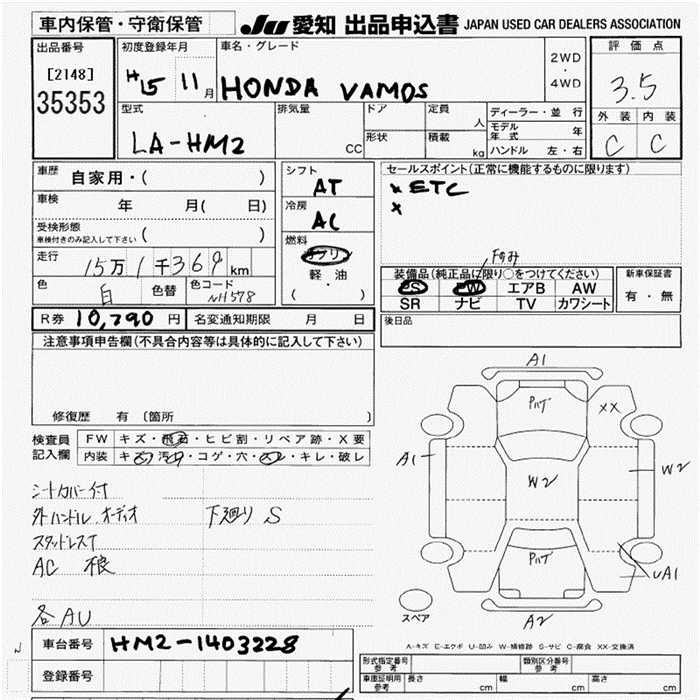 車内保管・守衛保管
JU 愛知 出品申込書 JAPAN USED CAR DEALERS ASSOCIATION
出品番号
[2148]
35353
初度登録年月
H15 11月
車名・グレード
HONDA VAMOS
2WD
・
4WD
評価点
3.5
外装 内装
C C
型式
LA-HM2
排気量
CC
ドア
形状
定員
人
積載
kg
ディーラー・並行
モデル年式 年
ハンドル 左・右
車歴 自家用・( )
車検 年 月( 日)
受検形態
車検付きのみ記入して下さい ( )
走行 15万1千369km
色 白 色替 色コード NH578
シフト
AT
冷房
AC
燃料
ガソリ
軽・油
( )
セールスポイント(正常に機能するものに限ります)
× ETC
×
装備品(純正品に限り○をつけてください)
PS PW エアB AW
SR ナビ TV カワシート
新車保証書
有・無
R券 10,790円 名変通知期限 月 日
後日品
注意事項申告欄(不具合内容等は具体的に記入して下さい)
修復歴 有 〔箇所 〕
検査員記入欄
FW キズ・飛石・ヒビ割・リペア跡・X要
内装 キズ・汚れ・コゲ・穴・スレ・キレ・破レ
シートカバー付
外ハンドル オーディオ 下廻り S
スタッドレスT
AC 狼
各AU
A1
××
A1
W2
W2
UA1
A2
スペア
A-キズ E-エクボ U-凹み W-補修跡 S-サビ C-腐食 XX-交換済
車台番号 HM2-1403228
登録番号
型式指定番号 参考
類別区分番号 参考
車庫証明用 参考 長さ cm 幅 cm 高さ cm